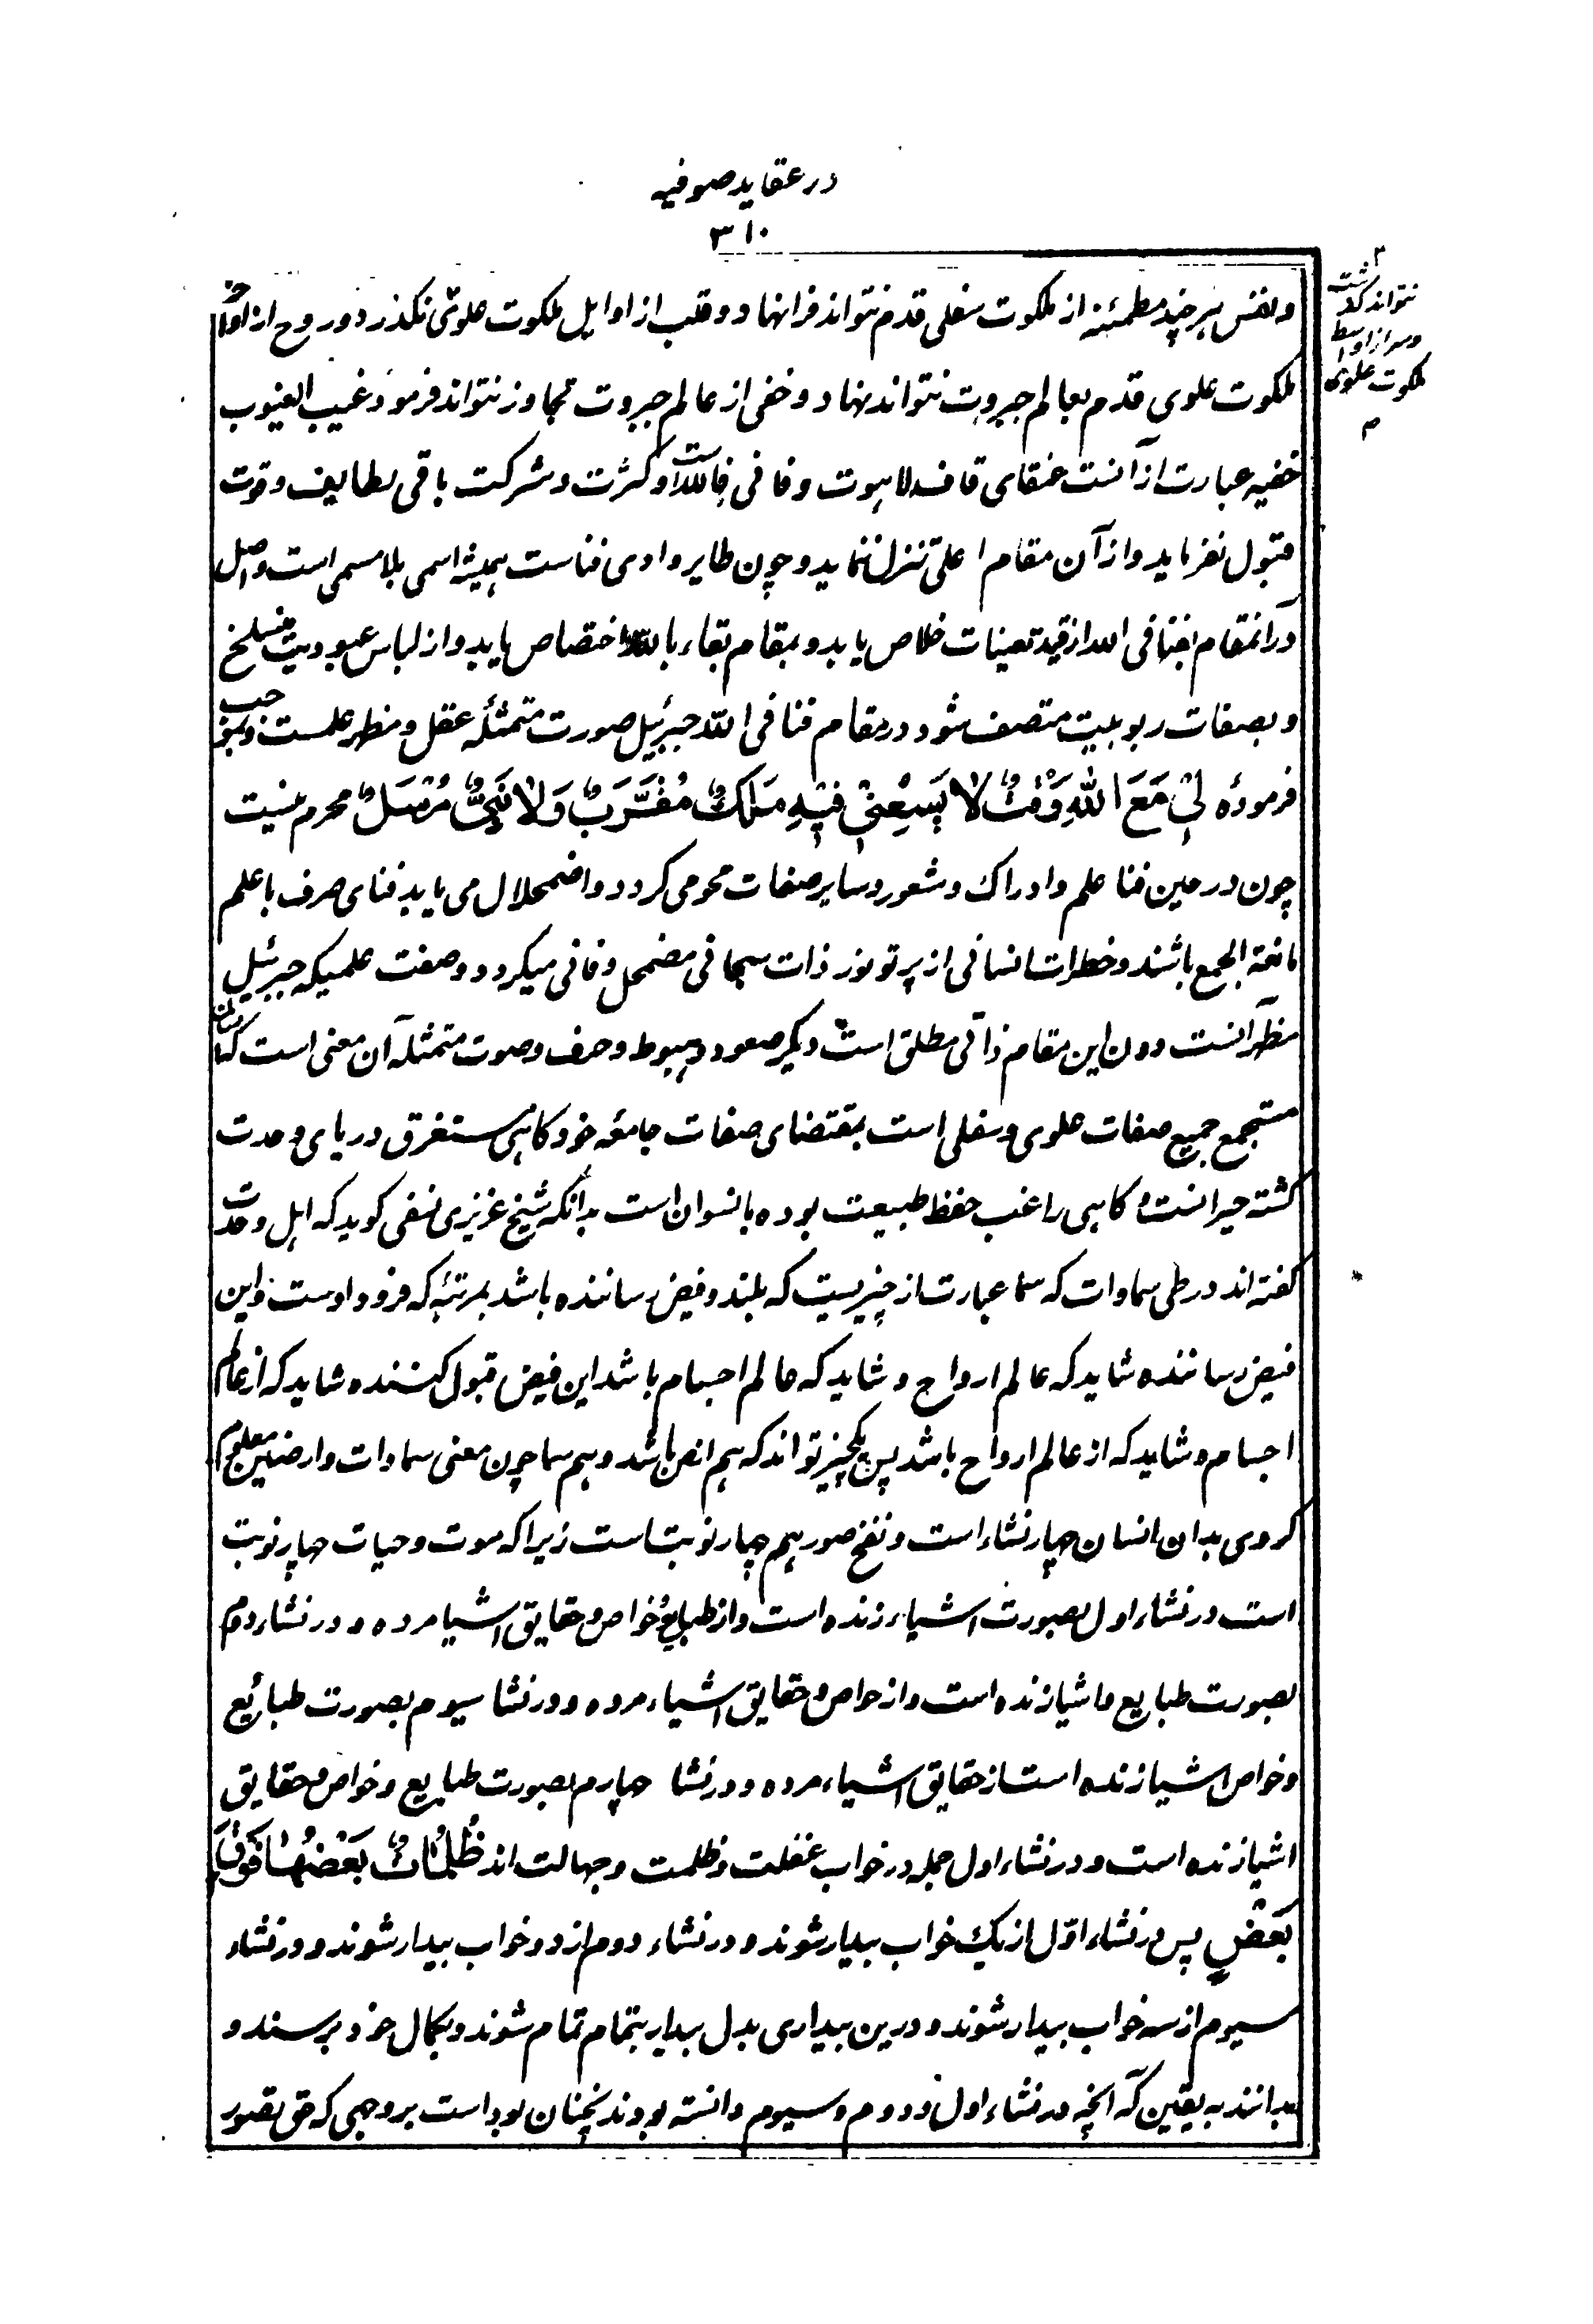 در عقاید صوفیه
۳۱۰
و نفس هرچند مطمئنه از ملکوت سفلی قدم نتواند فرا نهاد و قلب از اوایل ملکوت علوی نگذرد و روح از اواخر
ملکوت علوی قدم بعالم جبروت نتواند نهاد و خفی از عالم جبروت تجاوز نتواند فرمود غیب الغیوب
خفیه عبارت از آنست عنقای قاف لاهوت و فانی فی الله است او کثرت و شرکت باقی لطایف و قوت
قبول نفرماید و از آن مقام اعلی تنزل ننماید و چون طایر وادی فناست همیشه اسمی بلا مسمی است واصل
در آنمقام بفنا فی الله از قید تعینات خلاص یابد و بمقام بقاء بالله اختصاص یابد و از لباس عبودیت منسلخ
و بصفات ربوبیت متصف شود در مقام فنا فی الله جبرئیل صورت متمثله عقل و مظهر علمست و بموجب
فرموده لِی مَعَ اللهِ وَقْتٌ لَا یَسَعُنِی فِیهِ مَلَكٌ مُقَرَّبٌ وَلَا نَبِیٌّ مُرْسَلٌ محرم نیست
چون در حین فنا علم و ادراک و شعور و سایر صفات محو می کردد و اضمحلال می یابد فنای صرف با علم
مانعة الجمع باشند و خطرات انسانی از پرتو نور ذات سبحانی مضمحل و فانی میکردد و صفت علمیکه جبرئیل
مظهر آنست دون این مقام ذاتی مطلق است دیکر صعود و هبوط و حرف و صوت متمثله آن معنی است که انسان
مستجمع جمیع صفات علوی و سفلی است بمقتضای صفات جامعه خود کاهی مستغرق دریای وحدت
کشته حیرانست و کاهی راغب حفظ طبیعت بوده با نسوان است بدانکه شیخ عزیزی نسفی کوید که اهل وحدت
کفته اند در طی سماوات که سما عبارت از چیزیست که بلند و فیض رساننده باشد بمرتبه که فرود اوست و این
فیض رساننده شاید که عالم ارواح و شاید که عالم اجسام باشد این فیض قبول کننده شاید که از عالم
اجسام و شاید که از عالم ارواح باشد پس یکچیز تواند که هم ارض باشد و هم سما چون معنی سماوات و ارضین معلوم
کردی بدان انسان چهار نشاء است و نفخ صور هم چهار نوبت است زیرا که موت و حیات چهار نوبت
است در نشاء اول بصورت اشیاء زنده است و از طبایع و خواص و حقایق اشیا مرده و در نشاء دوم
بصورت طبایع اشیا زنده است و از خواص و حقایق اشیاء مرده و در نشا سیوم بصورت طبائع
و خواص اشیا زنده است از حقایق اشیاء مرده و در نشا چهارم بصورت طبایع و خواص و حقایق
اشیا زنده است و در نشاء اول جمله در خواب غفلت و ظلمت و جهالت اند ظُلُمَاتٌ بَعْضُهَا فَوْقَ
بَعْضٍ پس در نشاء اوّل از یک خواب بیدار شوند و در نشاء دوم از دو خواب بیدار شوند و در نشاء
سیوم از سه خواب بیدار شوند و درین بیداری بدل بیدار بتمام تمام شوند و بکمال خود برسند و
بدانند به یقین که آنچه در نشاء اول و دوم و سیوم دانسته بودند نچنان بود است بر وجهی که حق تصور
۲
نتواند گذشت
و سر از اواسط
ملکوت علوی
م